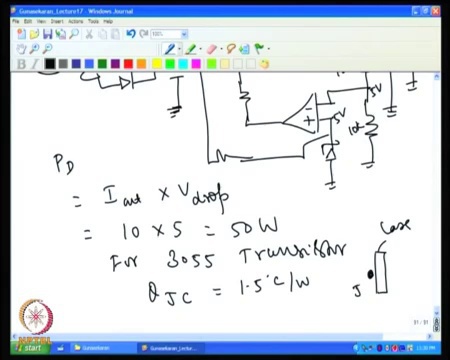 Gunasekaran_Lecture17 - Windows Journal
File Edit View Insert Actions Tools Help
100%
B I
5V
5V
10k
P_D
= I_out × V_drop
= 10 × 5 = 50W
For 3055 Transistor
θ_JC = 1.5°C/W
Case
J
NPTEL
start
Gunasekaran
Gunasekaran_Lectur...